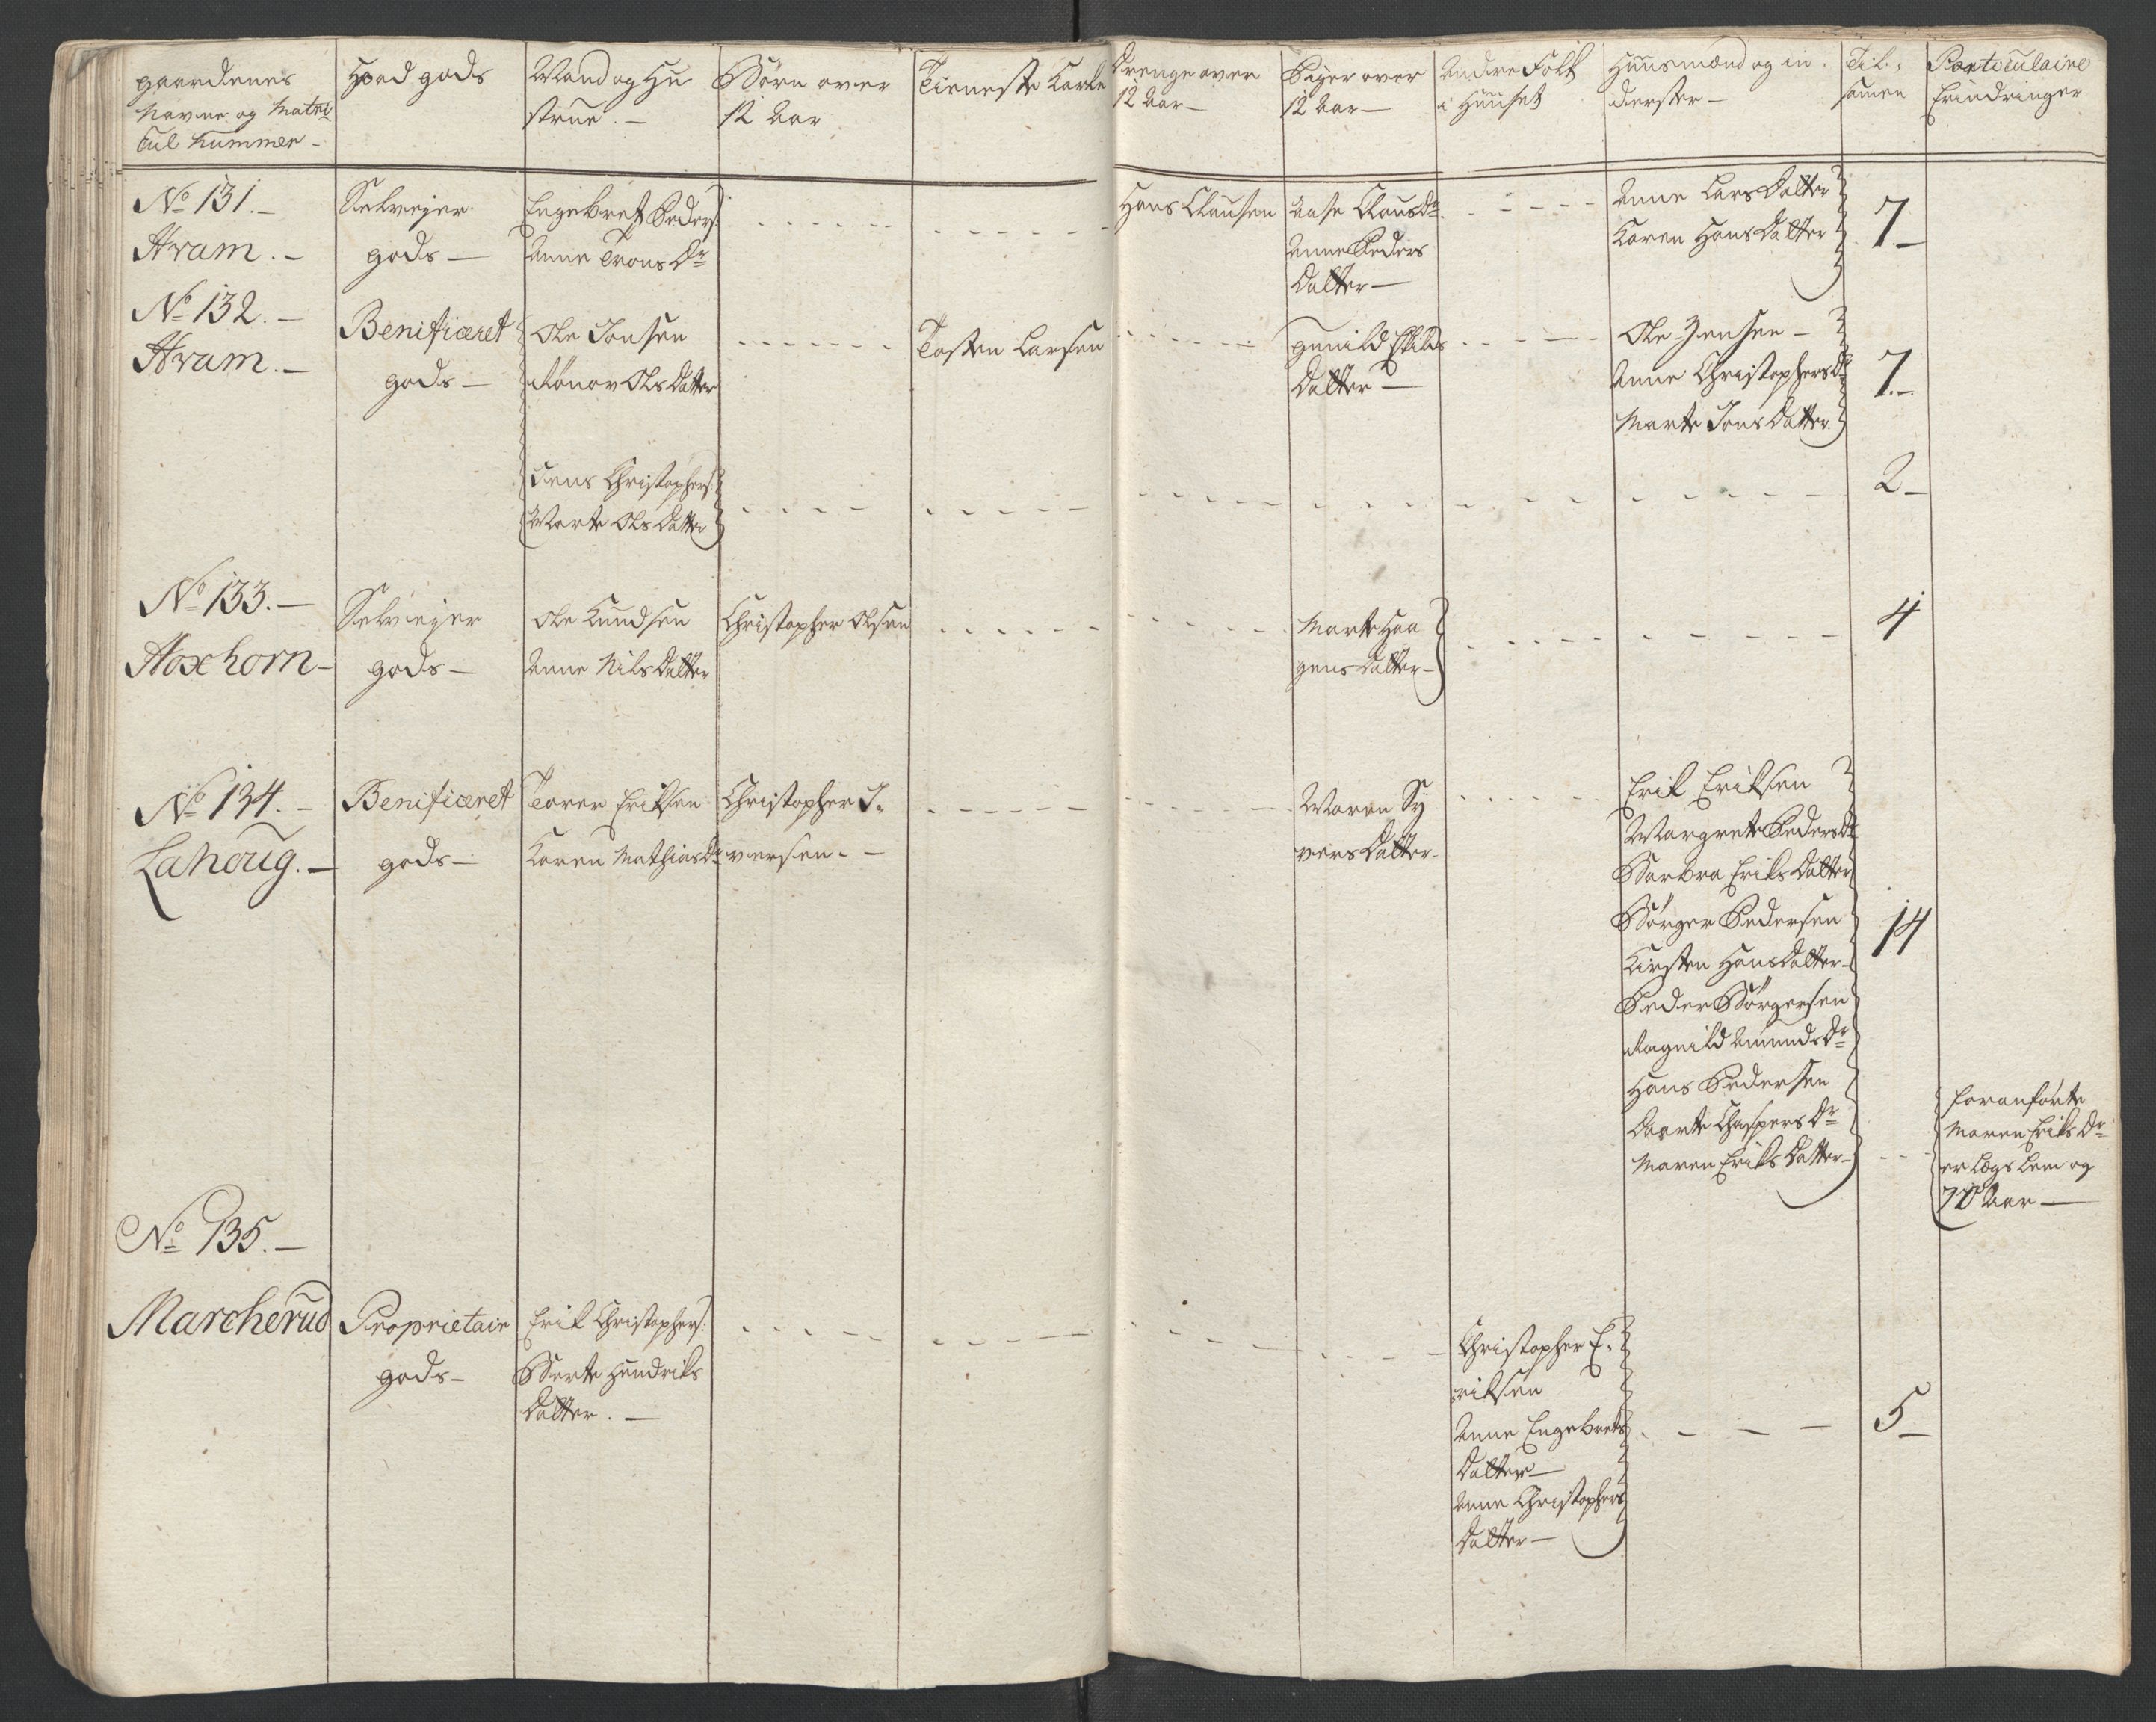 gaardenes
Navne og Matri
cul Nummer -
Hvad gods
Mand og Hu
strue. -
Børn over
12 Aar
Tieneste Karle
Drenge over
12 Aar -
Piger over
12 Aar -
Andre Folk
i Huuset
Huusmænd og in
derster -
Til-
samen
Particulaire
Erindringer
No 131. -
Hvam. -
Selvejer
gods -
Engebret Peders:
Anne Trons Dr
Hans Clausen
Aase Claus Dr
Anne Peders
Datter -
Anne Lars Datter
Karen Hans Datter
7. -
No 132. -
Hvam. -
Benificeret
gods -
Ole Jonsen
Rønov Ols Datter
Tosten Larsen
gunild Eskilds
Datter -
Ole Jensen -
Anne Christophers Dr
Marte Jons Datter
7. -
Jens Christophers:
Marte Ols Datter
2 -
No 133. -
Hoxhorn -
Selviejer
gods -
Ole Knudsen
Anne Nils Datter
Christopher Olsen
Marte Haa
gens Datter -
4
No 134. -
Lahoug. -
Benificeret
gods -
Torer Eriksen
Karen Mathias Dr
Christopher I-
versen. -
Maren Sy
vers Datter -
Erik Eriksen
Margrete Peders Dr
Barbra Eriks Datter
Børger Pedersen
Kirsten Hans Datter -
Peder Børgersen
Ragnild Amunds Dr
Hans Pedersen
Dorte Chaspers Dr
Maren Eriks Datter -
14
foranførte
Maren Eriks Dr
er Lægs Lem og
70 Aar -
No 135. -
Marcherud
Proprietair
gods -
Erik Christophers:
Berte Hendriks
Datter. -
Christopher E-
riksen
Anne Engebrets
Datter -
Anne Christophers
Datter -
5 -